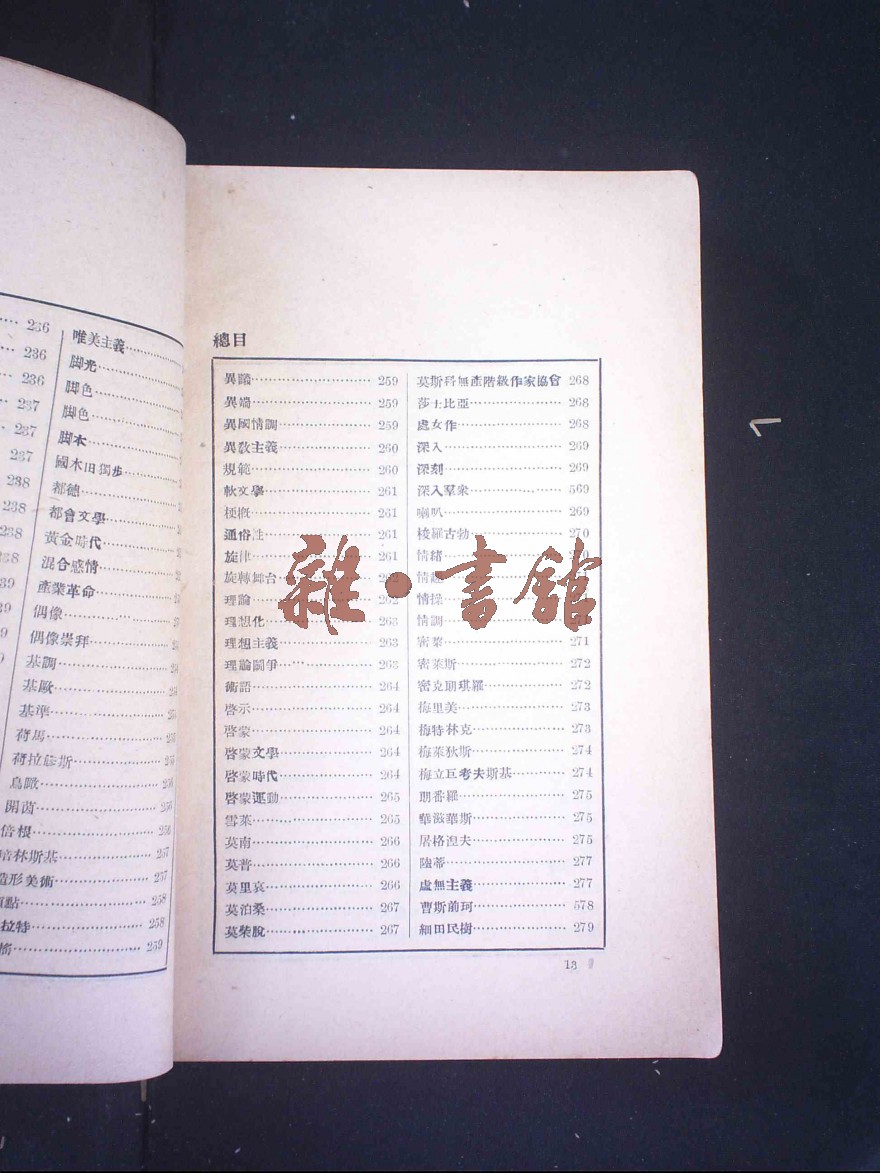 236
236
236
237
237
237
238
238
238
238
239
239
唯美主義
脚光
脚色
脚色
脚本
國木田獨步
都德
都會文學
黃金時代
混合感情
產業革命
偶像
偶像崇拜
基調
基歐
基準
荷馬
荷拉修斯
鳥瞰 256
開茵 256
倍根 256
培林斯基 257
造形美術 257
258
拉特 258
259
總目
異議 259
異端 259
異國情調 259
異敎主義 260
規範 260
軟文學 261
梗槪 261
通俗性 261
旋律 261
旋轉舞台 262
理論 262
理想化 263
理想主義 263
理論鬬爭 263
術語 264
啓示 264
啓蒙 264
啓蒙文學 264
啓蒙時代 264
啓蒙運動 265
雪萊 265
莫南 266
莫普 266
莫里哀 266
莫泊桑 267
莫柴脫 267
莫斯科無產階級作家協會 268
莎士比亞 268
處女作 268
深入 269
深刻 269
深入羣衆 569
喇叭 269
梭羅古勃 270
情緒
情趣
情操
情調 271
密棻 271
密萊斯 272
密克琪羅 272
梅里美 273
梅特林克 273
梅萊狄斯 274
梅立叵考夫斯基 274
番羅 275
華滋華斯 275
屠格涅夫 275
陸蒂 277
虛無主義 277
曹斯前珂 578
細田民樹 279
13
雜·書館